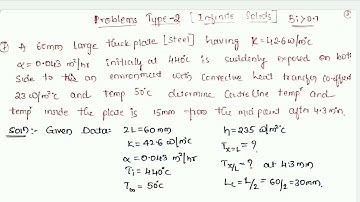 Problems Type-2 [Infinite Solids] Bi>0.1
① A 60mm large thick plate [steel] having K=42.6 w/m°c
α=0.043 m²/hr initially at 440°c is suddenly exposed on both
side to an environment with convective heat transfer co-effient
235 w/m²°c and temp 50°c determine Centre line temp and
temp inside the plate is 15mm from the mid plane after 4.3 min.
Given Data: 2L=60mm h=235 w/m²°c
K=42.6 w/m°c Tx=L=?
α=0.043 m²/hr Tx/L=? at 4.3min
Ti=440°c Lc=L/2=60/2=30mm.
T∞=50°c